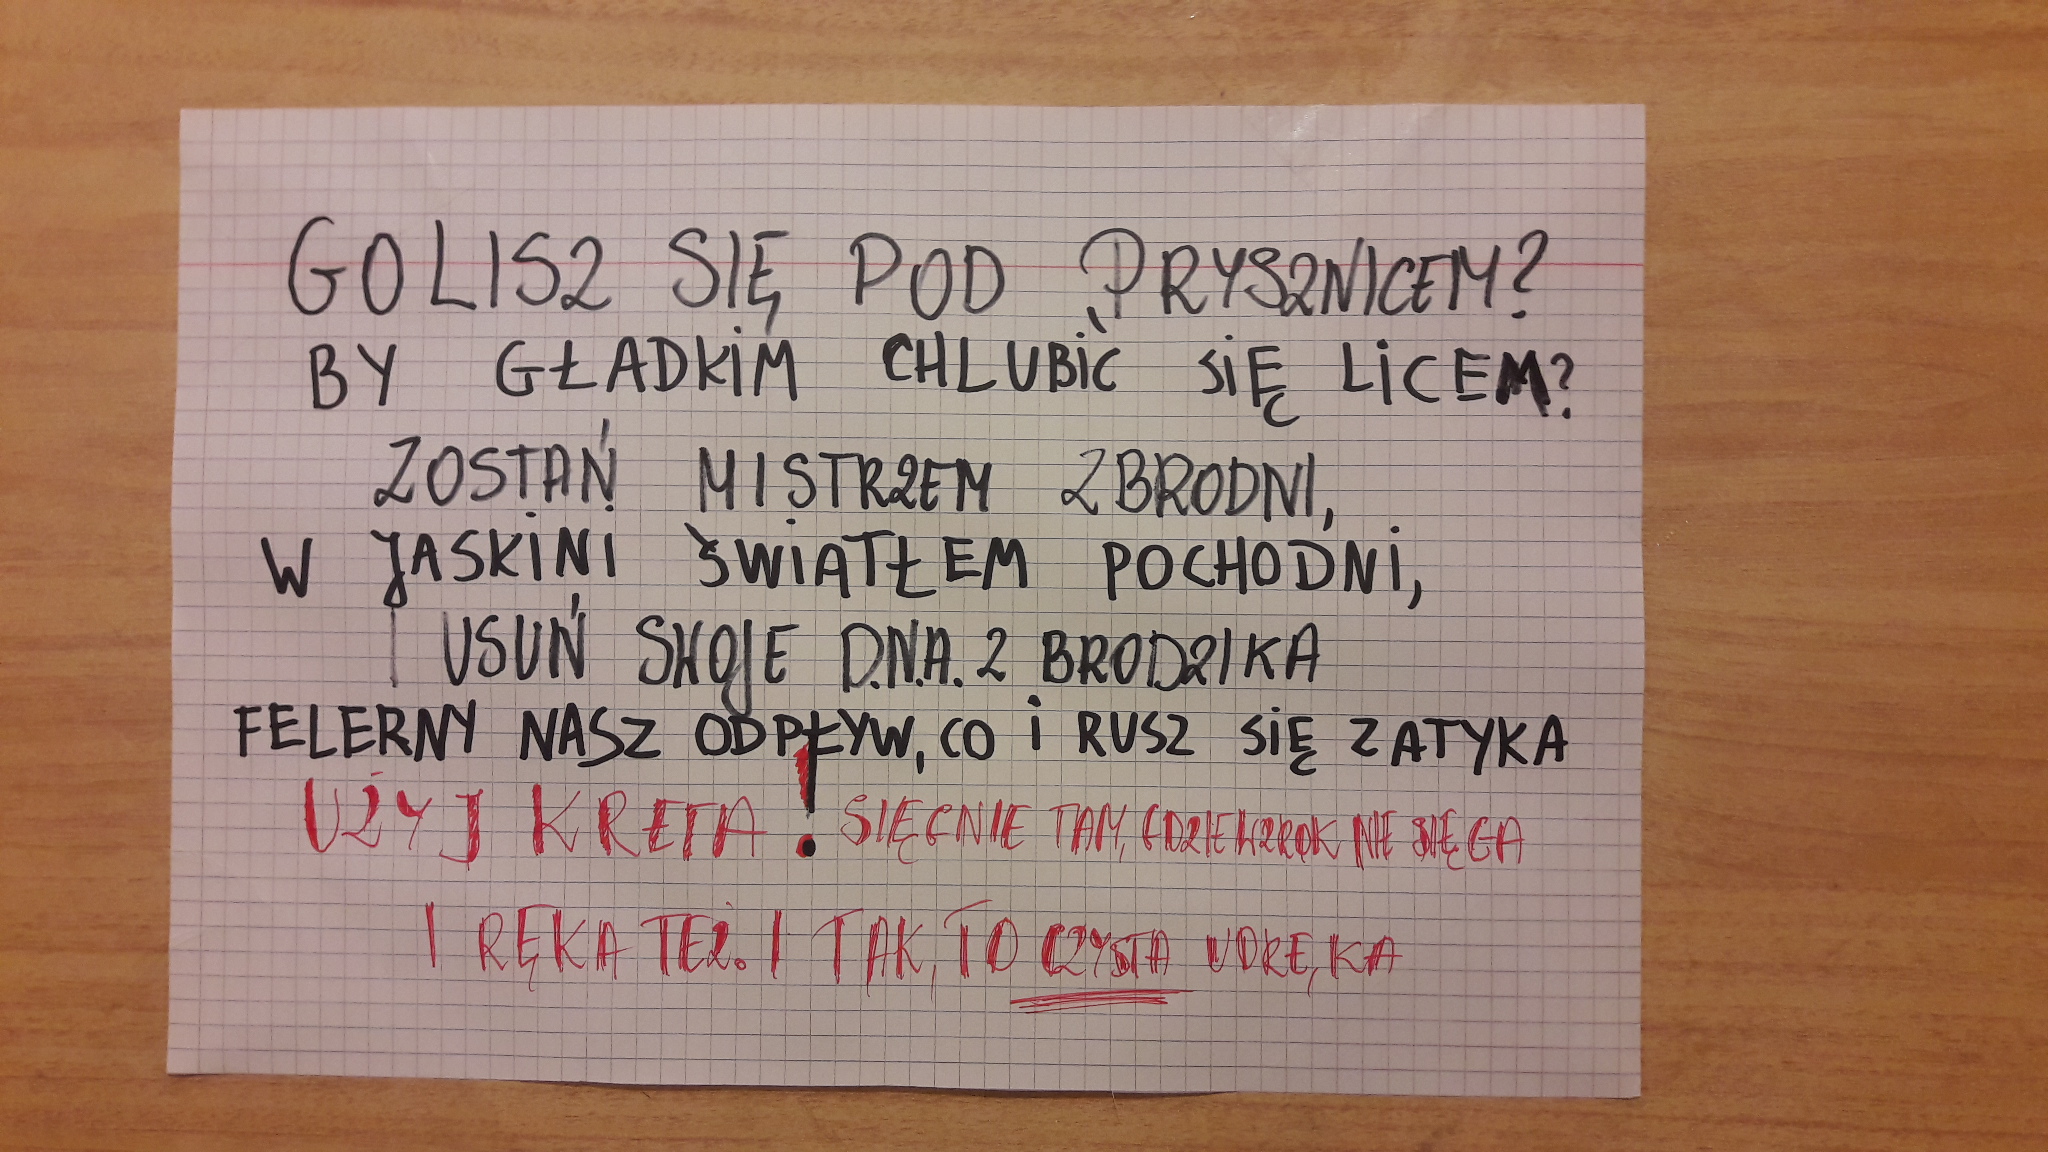 GOLISZ SIĘ POD PRYSZNICEM?
BY GŁADKIM CHLUBIĆ SIĘ LICEM?
ZOSTAŃ MISTRZEM ZBRODNI,
W JASKINI ŚWIATŁEM POCHODNI,
USUŃ SWOJE D.N.A. Z BRODZIKA
FELERNY NASZ ODPŁYW, CO I RUSZ SIĘ ZATYKA
UŻYJ KRETA! SIĘGNIE TAM, GDZIE WZROK NIE SIĘGA
I RĘKA TEŻ. I TAK, TO CZYSTA UDRĘKA